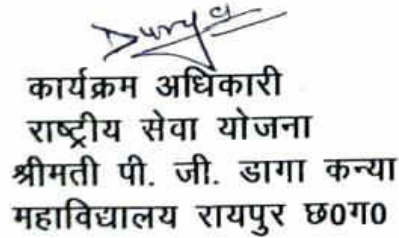 Durga
कार्यक्रम अधिकारी
राष्ट्रीय सेवा योजना
श्रीमती पी. जी. डागा कन्या
महाविद्यालय रायपुर छ0ग0